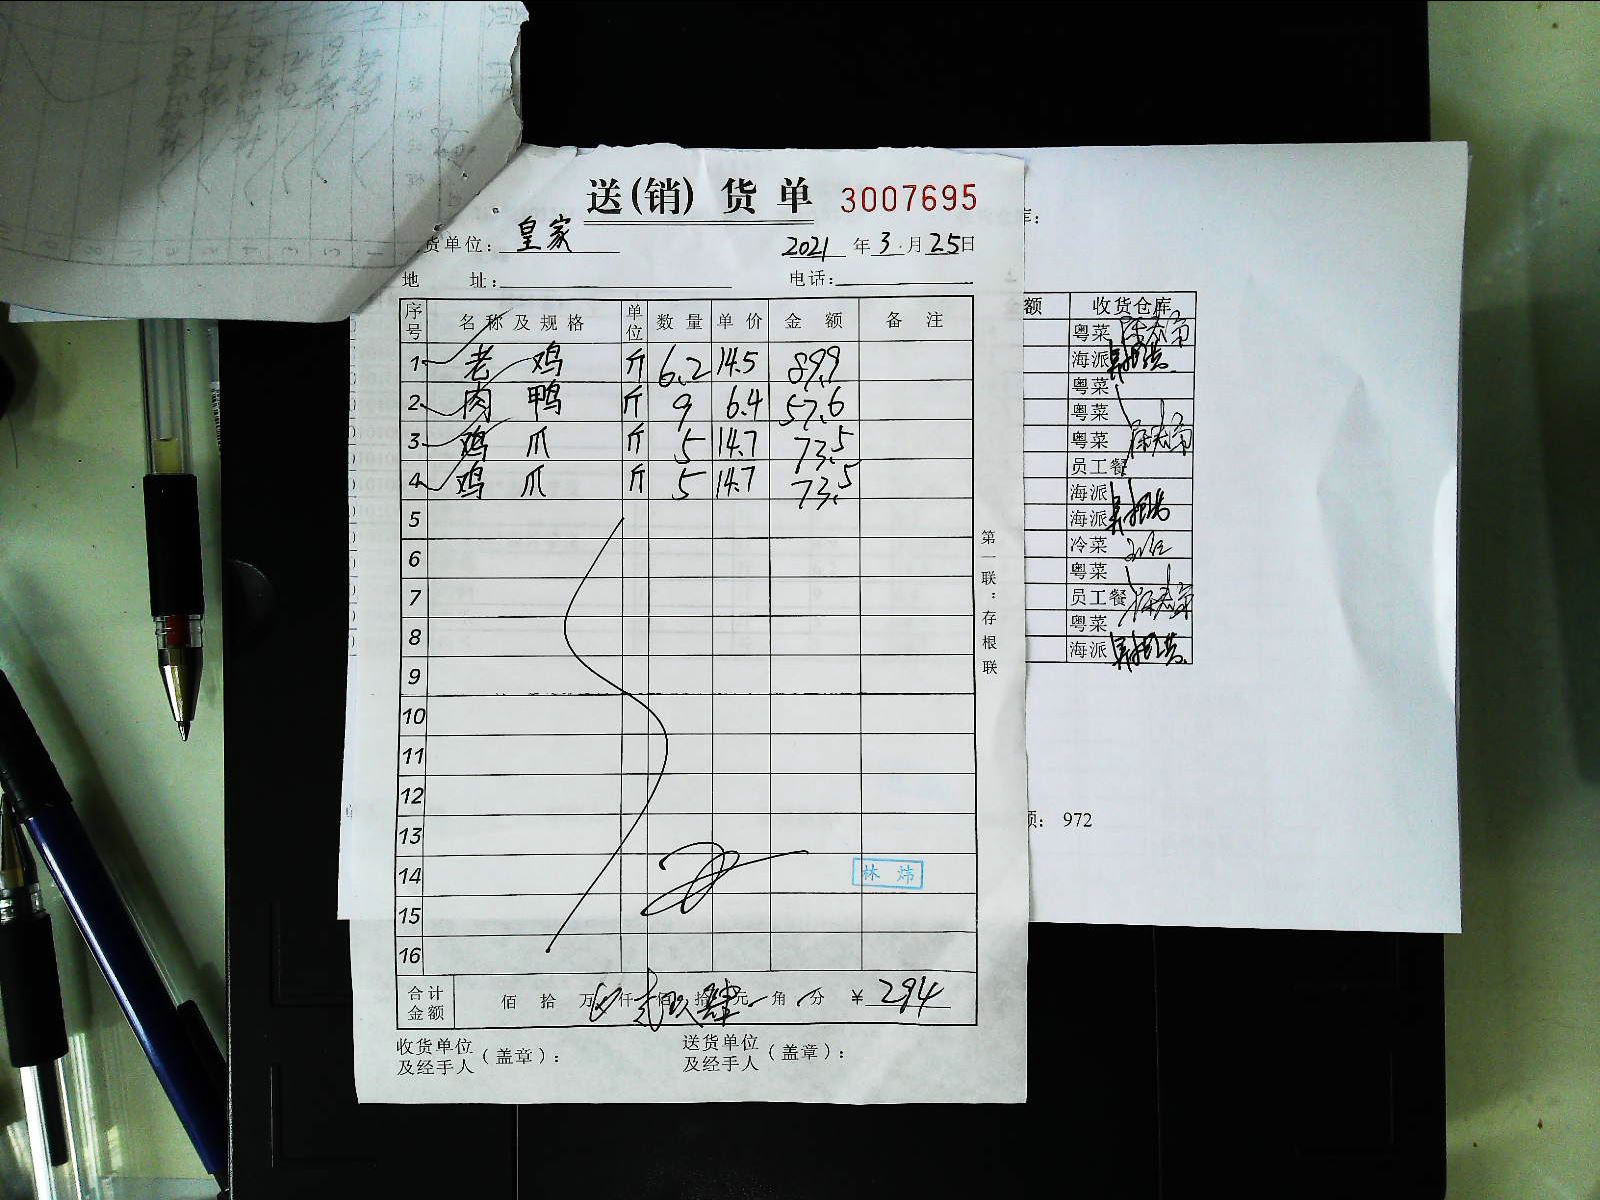 送(销)货单 3007695
货单位: 皇家 2021 年 3 月 25 日
地 址: 电话:
序号 名称及规格 单位 数量 单价 金额 备注
1 老鸡 斤 6.2 14.5 89.9
2 肉鸭 斤 9 6.4 57.6
3 鸡爪 斤 5 14.7 73.5
4 鸡爪 斤 5 14.7 73.5
5
6
7
8
9
10
11
12
13
14 林炜
15
16
合计金额 佰 拾 万 仟 佰 拾 肆 元 角 分 ¥ 294
收货单位及经手人(盖章): 送货单位及经手人(盖章):
第一联:存根联
库:
额 收货仓库
粤菜
海派
粤菜
粤菜
粤菜
员工餐
海派
海派
冷菜
粤菜
员工餐
粤菜
海派
额: 972